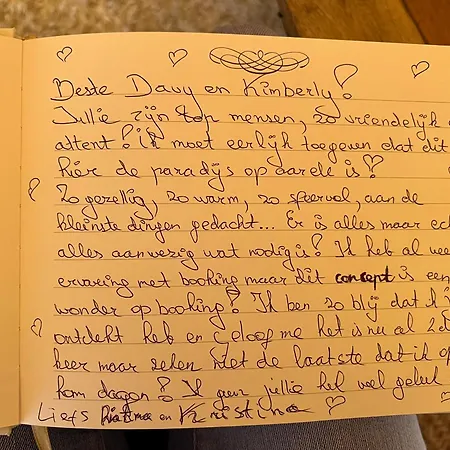 Beste Davy en Kimberly!
Jullie zijn top mensen, zo vriendelijk
attent! ik moet eerlijk toegeven dat dit
hier de paradijs op aarde is!
Zo gezellig, zo warm, zo sfeervol, aan de
kleinste dingen gedacht... Er is alles maar ech
alles aanwezig wat nodig is! Ik heb al vee
ervaring met booking maar dit concept is een
wonder op booking! Ik ben zo blij dat ik
ontdekt heb en geloof me het is nu al 2de
keer maar zeker niet de laatste dat ik
kom dagen! Ik jullie hel veel geluk
Liefs en Kristina